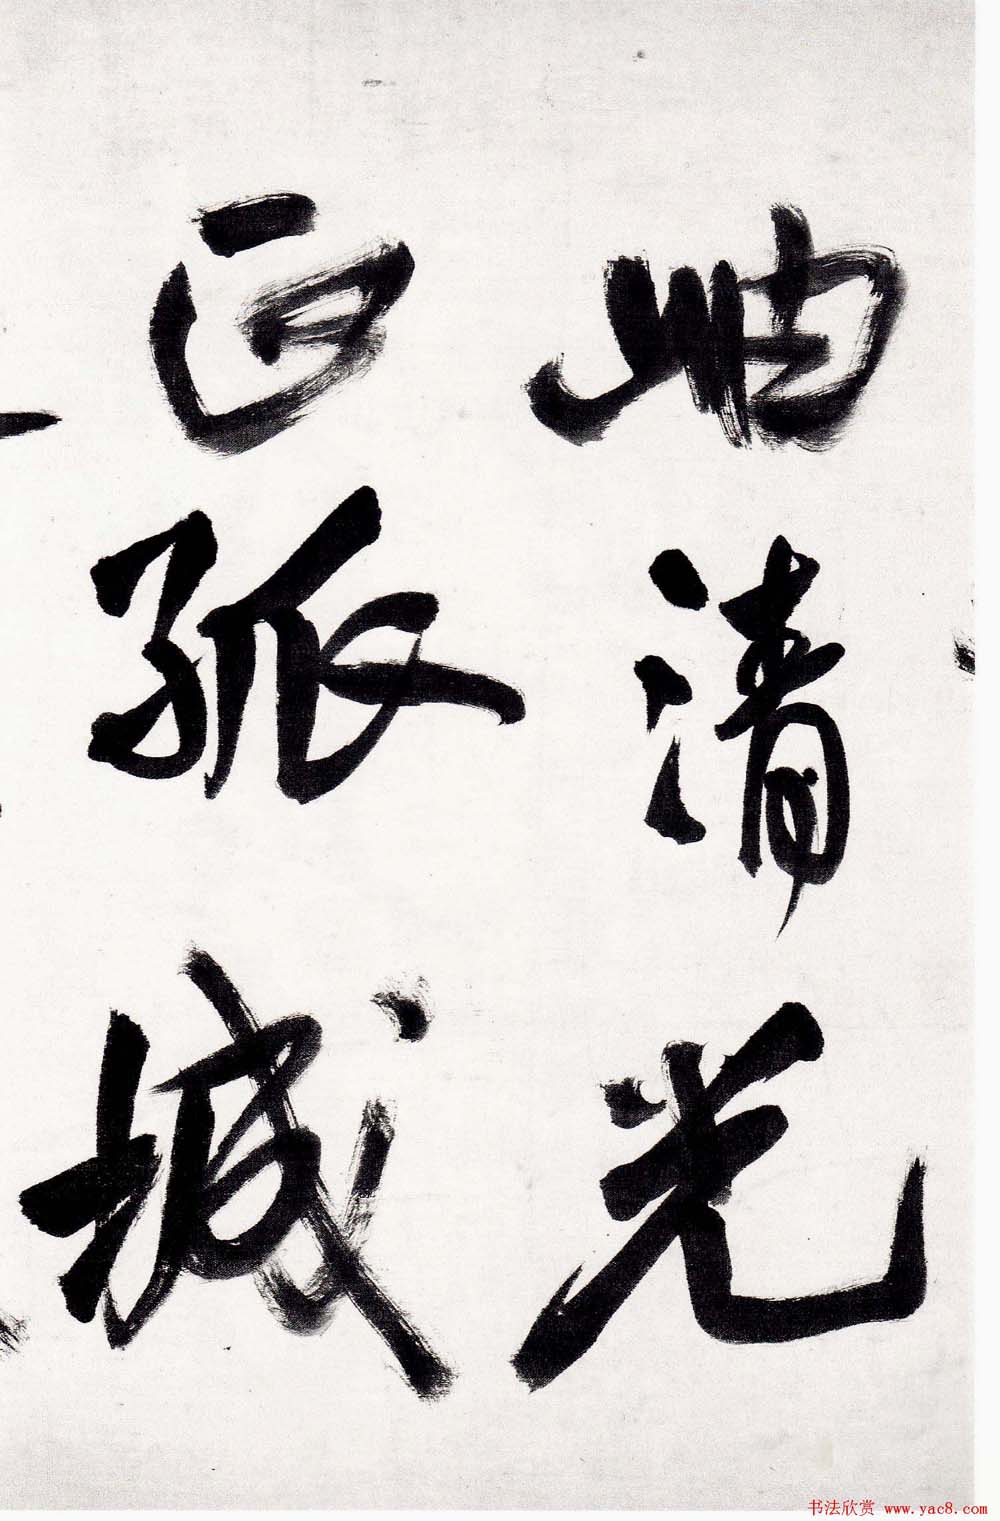 岫清光
孤城
书法欣赏 www.yac8.com